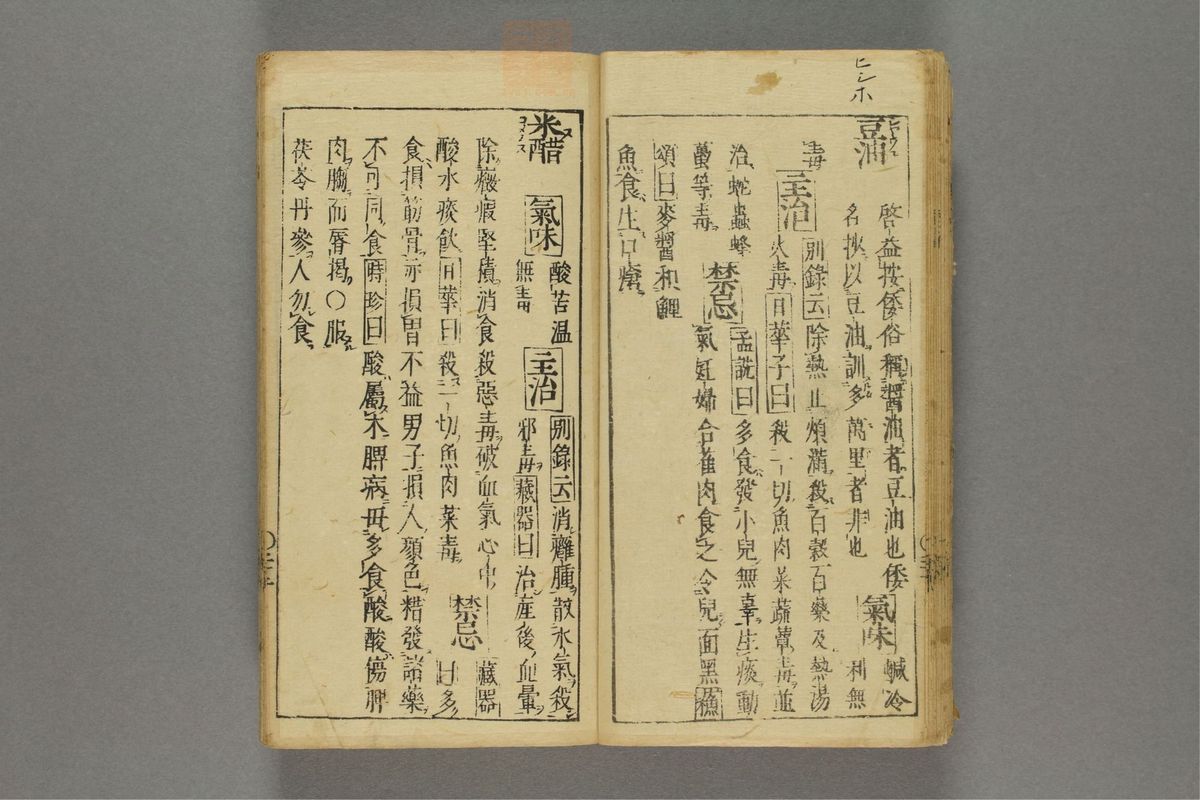 ヒシホ
豆油
啓益按倭俗稱醬油者豆油也倭
名挾以豆油訓多萬里者非也
氣味
鹹冷
利無
毒
主治
別錄云除熱止煩滿殺百藥及熱湯
火毒日華子曰殺一切魚肉菜蔬蕈毒並
治蛇蟲蜂
蠆等毒
禁忌
孟詵曰多食發小兒無辜生痰動
氣妊婦合雀肉食之令兒面黑蘇
頌曰麥醬和鯉
魚食生口瘡
米醋
コメノス
氣味
酸苦温
無毒
主治
別錄云消癰腫散水氣殺
邪毒藏器曰治產後血暈
除癥瘕堅積消食殺惡毒破血氣心中
酸水痰飲日華曰殺一切魚肉菜毒
禁忌
藏器
曰多
食損筋骨亦損胃不益男子損人顏色精發諸藥
不可同食時珍曰酸屬木脾病毋多食酸酸傷脾
肉䐢而唇揭〇服
茯苓丹參人勿食